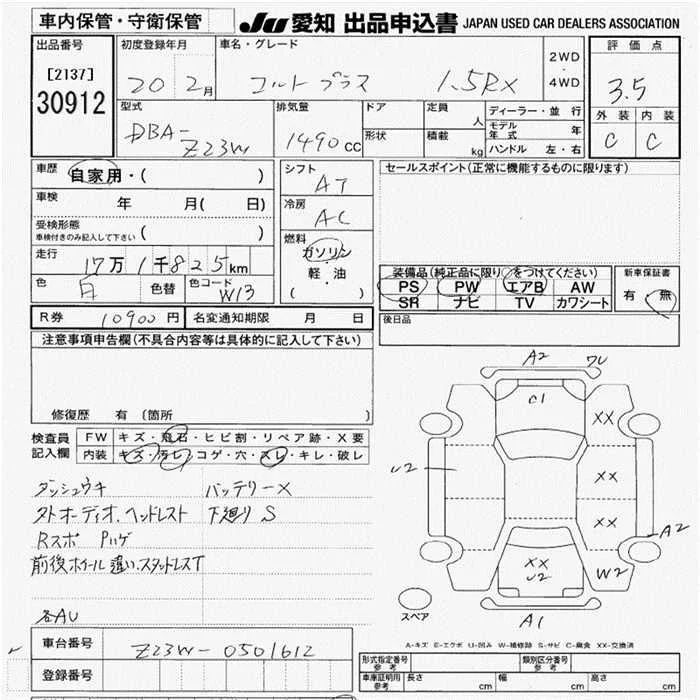 車内保管・守衛保管
JU 愛知 出品申込書 JAPAN USED CAR DEALERS ASSOCIATION
出品番号 初度登録年月 車名・グレード 2WD・4WD 評価点
[2137] 20 2月 コルト プラス 1.5RX 3.5
30912
型式 排気量 ドア 定員 人 ディーラー・並行 外装 内装
DBA- 1490cc 形状 積載 kg モデル年式 年 C C
Z23W ハンドル 左・右
車歴 自家用・( )
シフト AT
セールスポイント(正常に機能するものに限ります)
車検 年 月( 日)
冷房 AC
受検形態 ( )
車検付きのみ記入して下さい
燃料 ガソリン
軽・油
( )
走行 17万1千825km
色 白 色替 色コード W13
装備品(純正品に限り○をつけてください) 新車保証書
PS PW エアB AW 有・無
SR ナビ TV カワシート
R券 10900円 名変通知期限 月 日
後日品
注意事項申告欄(不具合内容等は具体的に記入して下さい)
修復歴 有 (箇所 )
検査員 FW キズ・飛石・ヒビ割・リペア跡・X要
記入欄 内装 キズ・汚レ・コゲ・穴・スレ・キレ・破レ
ダッシュウキ バッテリーX
ストオーディオ.ヘッドレスト 下廻りS
Rスポ Pハゲ
前後ホイール違い.スタッドレスT
各AU
A2 ワレ
C1
XX
U2
XX
XX
A2
XX
U2
W2
スペア
A1
A-キズ E-エクボ U-凹み W-補修跡 S-サビ C-腐食 XX-交換済
車台番号 Z23W-0501612
登録番号
形式指定番号 参考 類別区分番号 参考
車庫証明用 参考 長さ cm 幅 cm 高さ cm